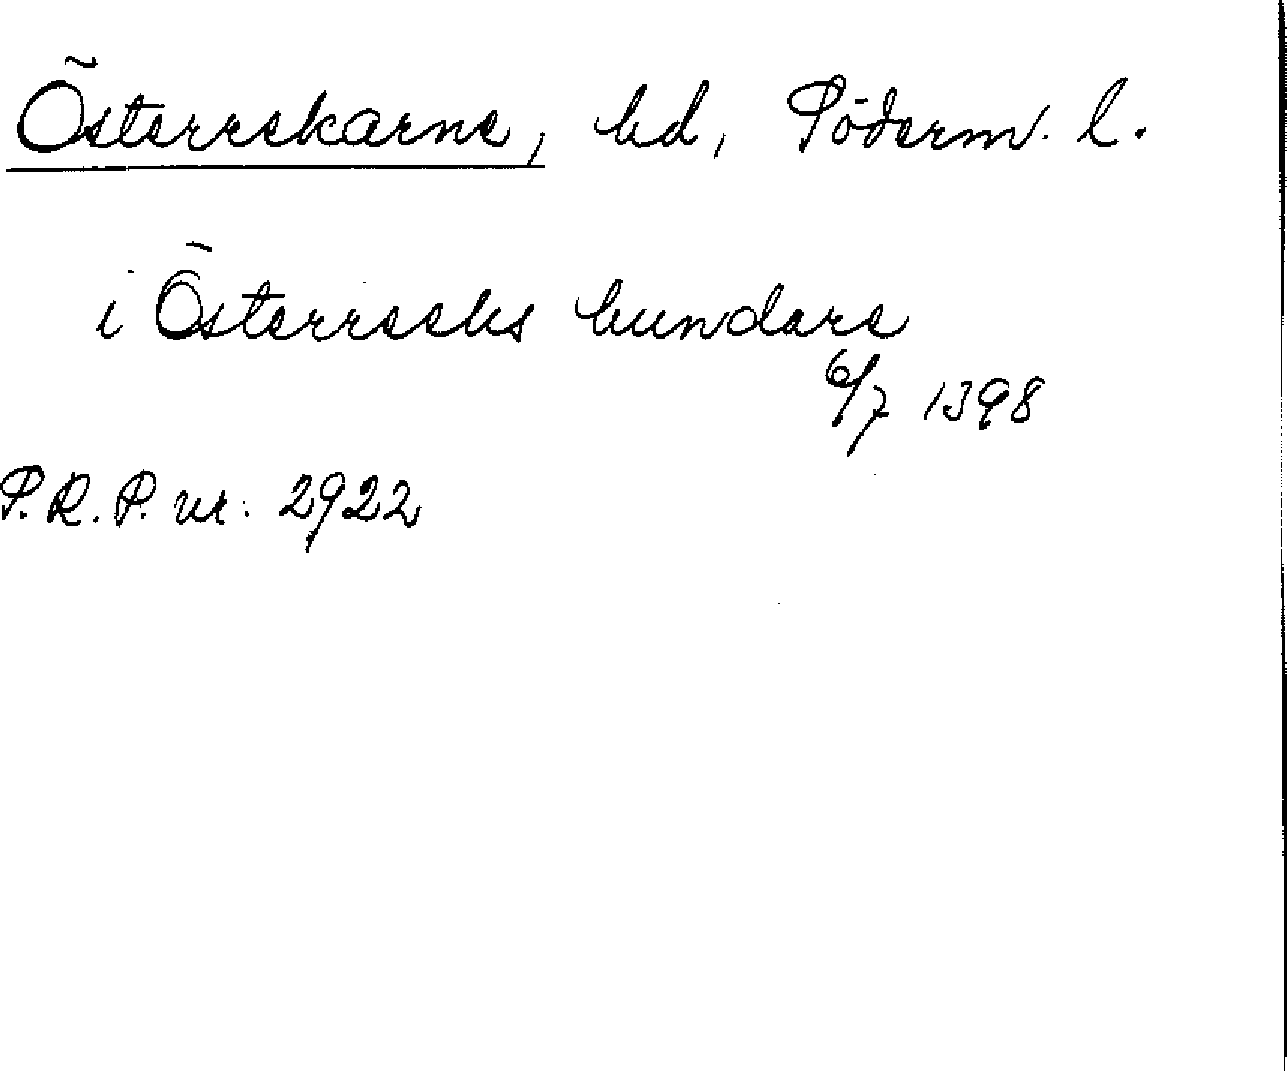 Österrekarne, hd, Söderm. l.
i Österreeks hundare
6/7 1398
P.R.P. nr: 2922